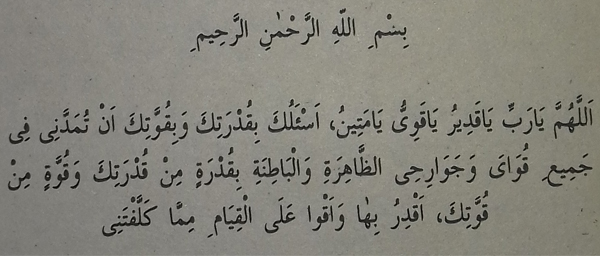 بِسْمِ اللّٰهِ الرَّحْمٰنِ الرَّحِيمِ
اَللَّهُمَّ يَارَبِّ يَاقَدِيرُ يَاقَوِىُّ يَامَتِينُ، اَسْئَلُكَ بِقُدْرَتِكَ وَبِقُوَّتِكَ اَنْ تُمَدَّنِى فِى
جَمِيعِ قُوَاىَ وَجَوَارِحِى الظَّاهِرَةِ وَالْبَاطِنَةِ بِقُدْرَةٍ مِنْ قُدْرَتِكَ وَقُوَّةٍ مِنْ
قُوَّتِكَ، اَقْدِرُ بِهَا وَاَقْوَا عَلَى الْقِيَامِ مِمَّا كَلَّفْتَنِى